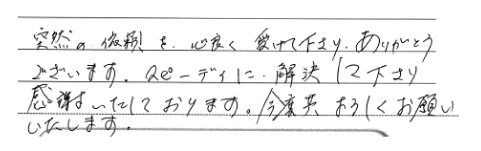 突然の依頼を、心良く受けて下さり、ありがとう
ございます。スピーディに、解決して下さり
感謝いたしております。今度共よろしくお願い
いたします。